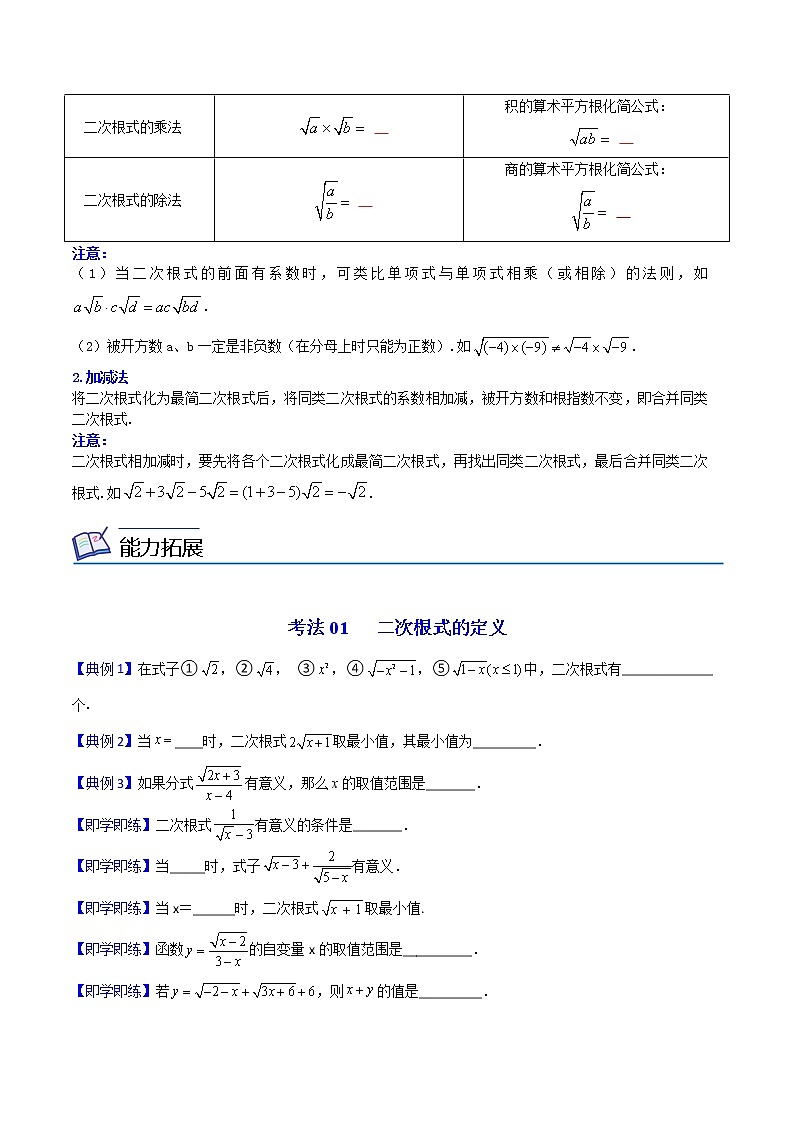 二次根式的乘法 √a×√b= __ 积的算术平方根化简公式：
√ab= __
二次根式的除法 √(a/b)= __ 商的算术平方根化简公式：
√(a/b)= __
注意：
（1）当二次根式的前面有系数时，可类比单项式与单项式相乘（或相除）的法则，如
a√b·c√d=ac√bd．
（2）被开方数a、b一定是非负数（在分母上时只能为正数）.如√((-4)×(-9))≠√-4×√-9．
2.加减法
将二次根式化为最简二次根式后，将同类二次根式的系数相加减，被开方数和根指数不变，即合并同类
二次根式.
注意：
二次根式相加减时，要先将各个二次根式化成最简二次根式，再找出同类二次根式，最后合并同类二次
根式.如√2+3√2-5√2=(1+3-5)√2=-√2．
能力拓展
考法01 二次根式的定义
【典例1】在式子①√2，②√4， ③x²，④√(-x²-1)，⑤√(1-x)(x≤1)中，二次根式有_____________
个．
【典例2】当x=____时，二次根式2√(x+1)取最小值，其最小值为_________．
【典例3】如果分式√(2x+3)/(x-4)有意义，那么x的取值范围是_______．
【即学即练】二次根式1/(√x-3)有意义的条件是_______．
【即学即练】当_____时，式子√(x-3)+2/√(5-x)有意义．
【即学即练】当x＝______时，二次根式√(x+1)取最小值.
【即学即练】函数y=√(x-2)/(3-x)的自变量x的取值范围是__________．
【即学即练】若y=√(-2-x)+√(3x+6)+6，则x+y的值是_________．